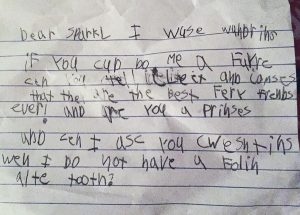 Dear Sparkl I wuse wundring
if you cud do me a Fufre
can you tell and
that the are the best Fery frends
ever! and are you a Prinses
and cen I ask you cwestins
wen I do not have a Folin
alte tooth?